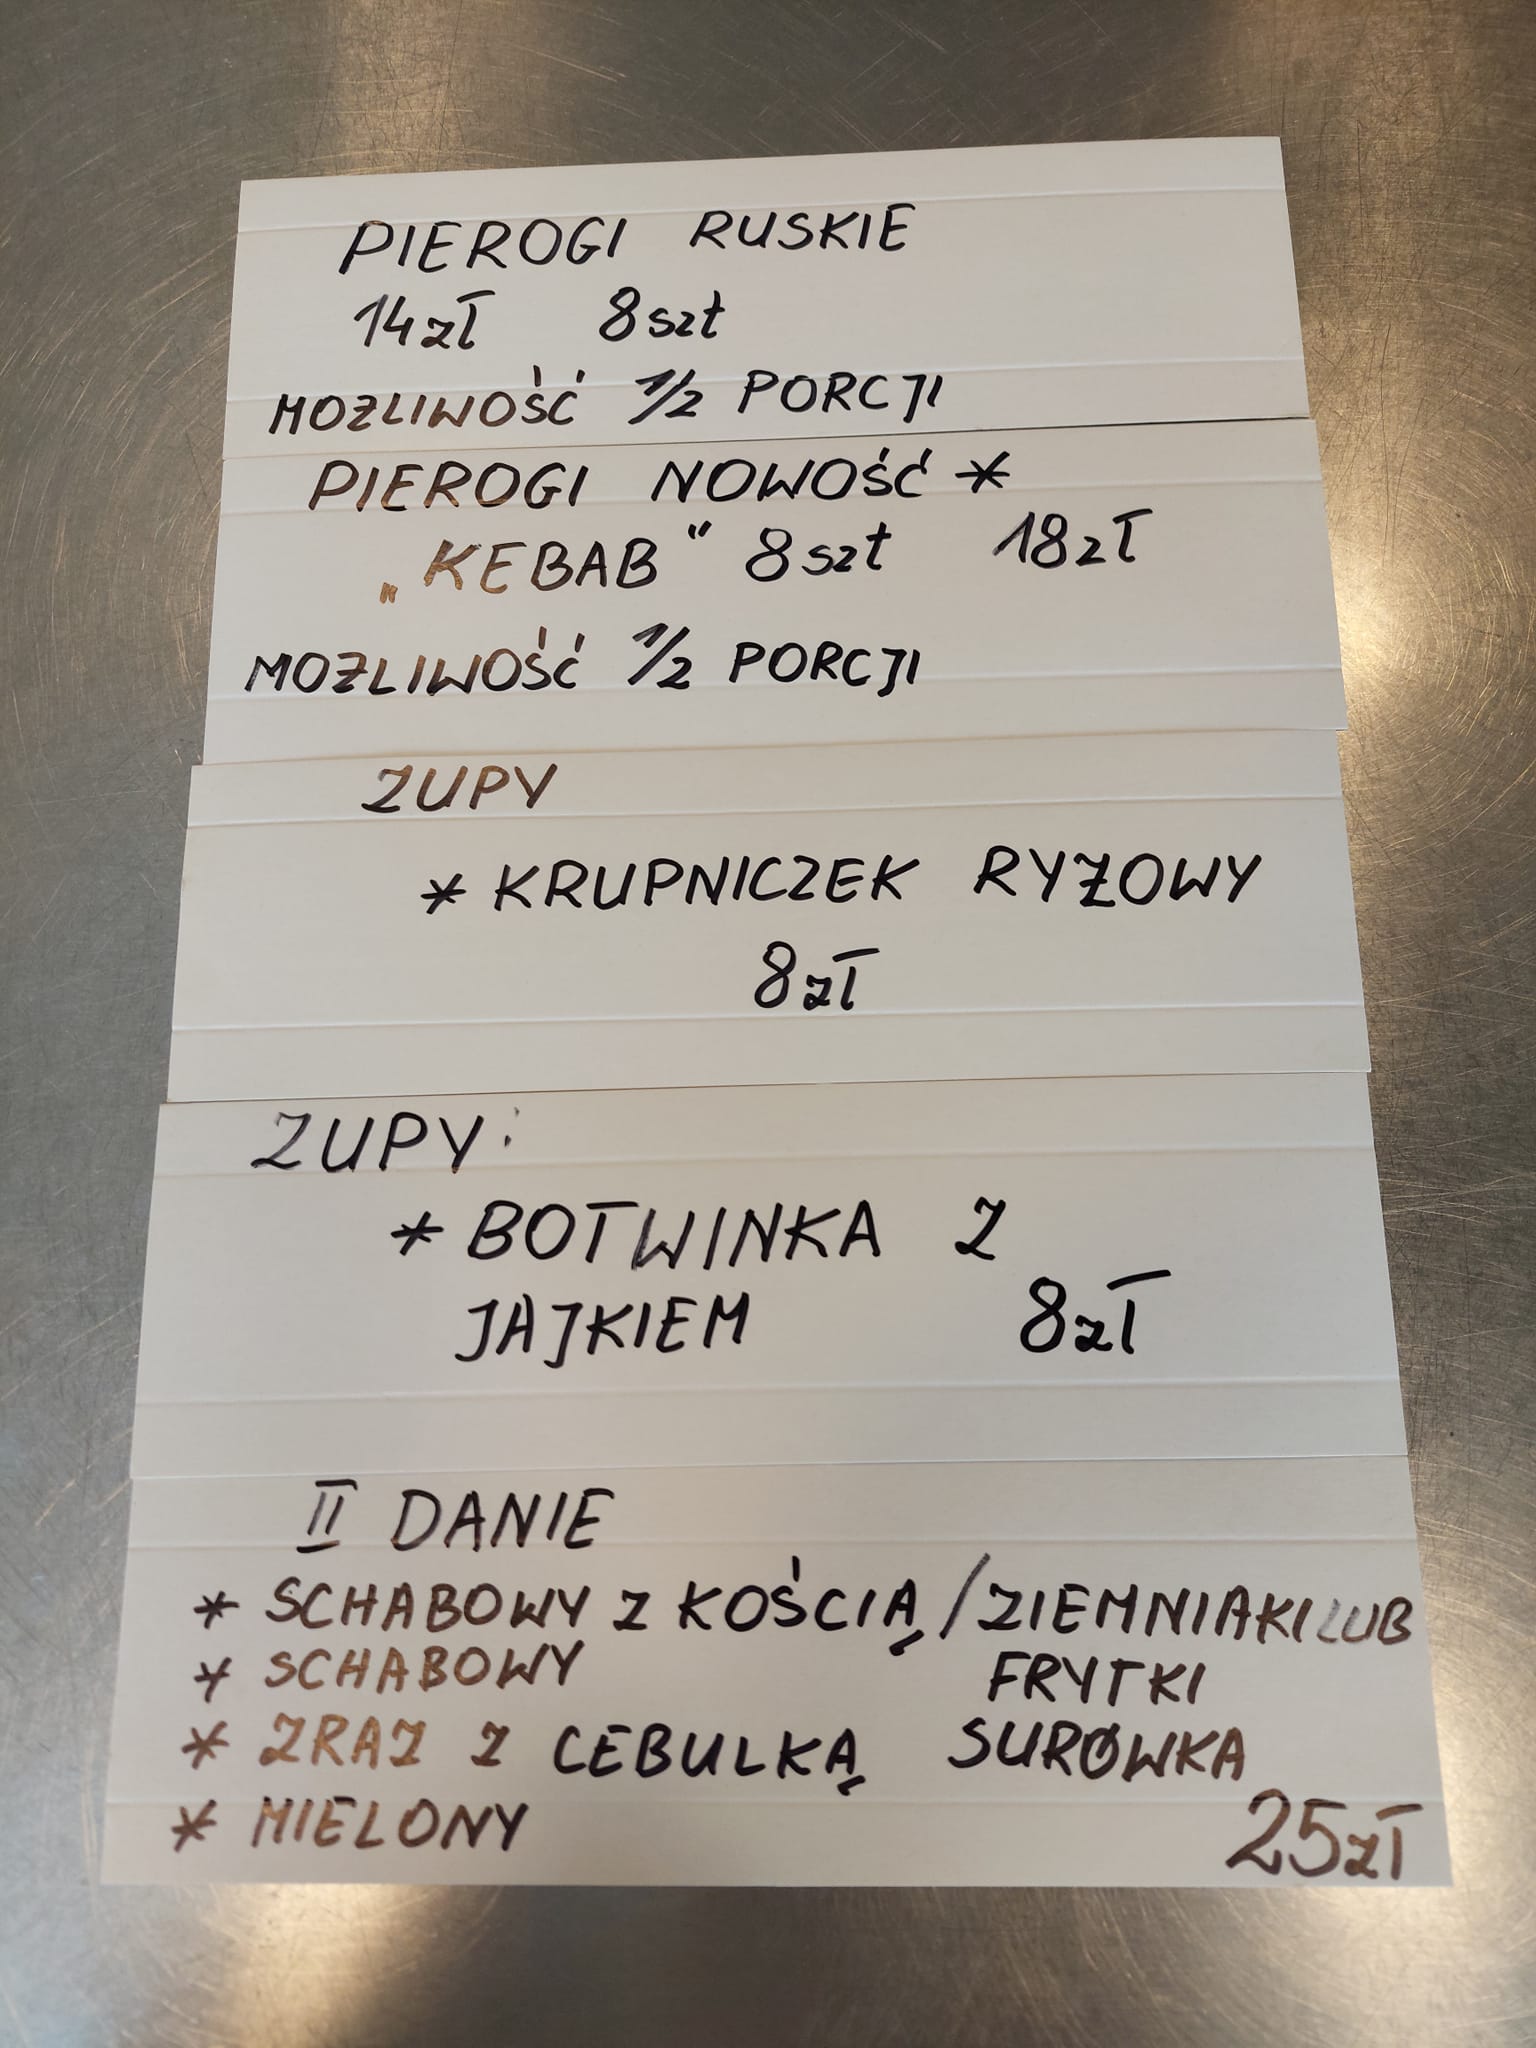 PIEROGI RUSKIE
14zł 8szt
MOŻLIWOŚĆ 1/2 PORCJI
PIEROGI NOWOŚĆ *
„KEBAB" 8szt 18zł
MOŻLIWOŚĆ 1/2 PORCJI
ZUPY
* KRUPNICZEK RYŻOWY
8zł
ZUPY:
* BOTWINKA Z
JAJKIEM 8zł
II DANIE
* SCHABOWY Z KOŚCIĄ / ZIEMNIAKI LUB
* SCHABOWY FRYTKI
* ZRAZ Z CEBULKĄ SURÓWKA
* MIELONY 25zł